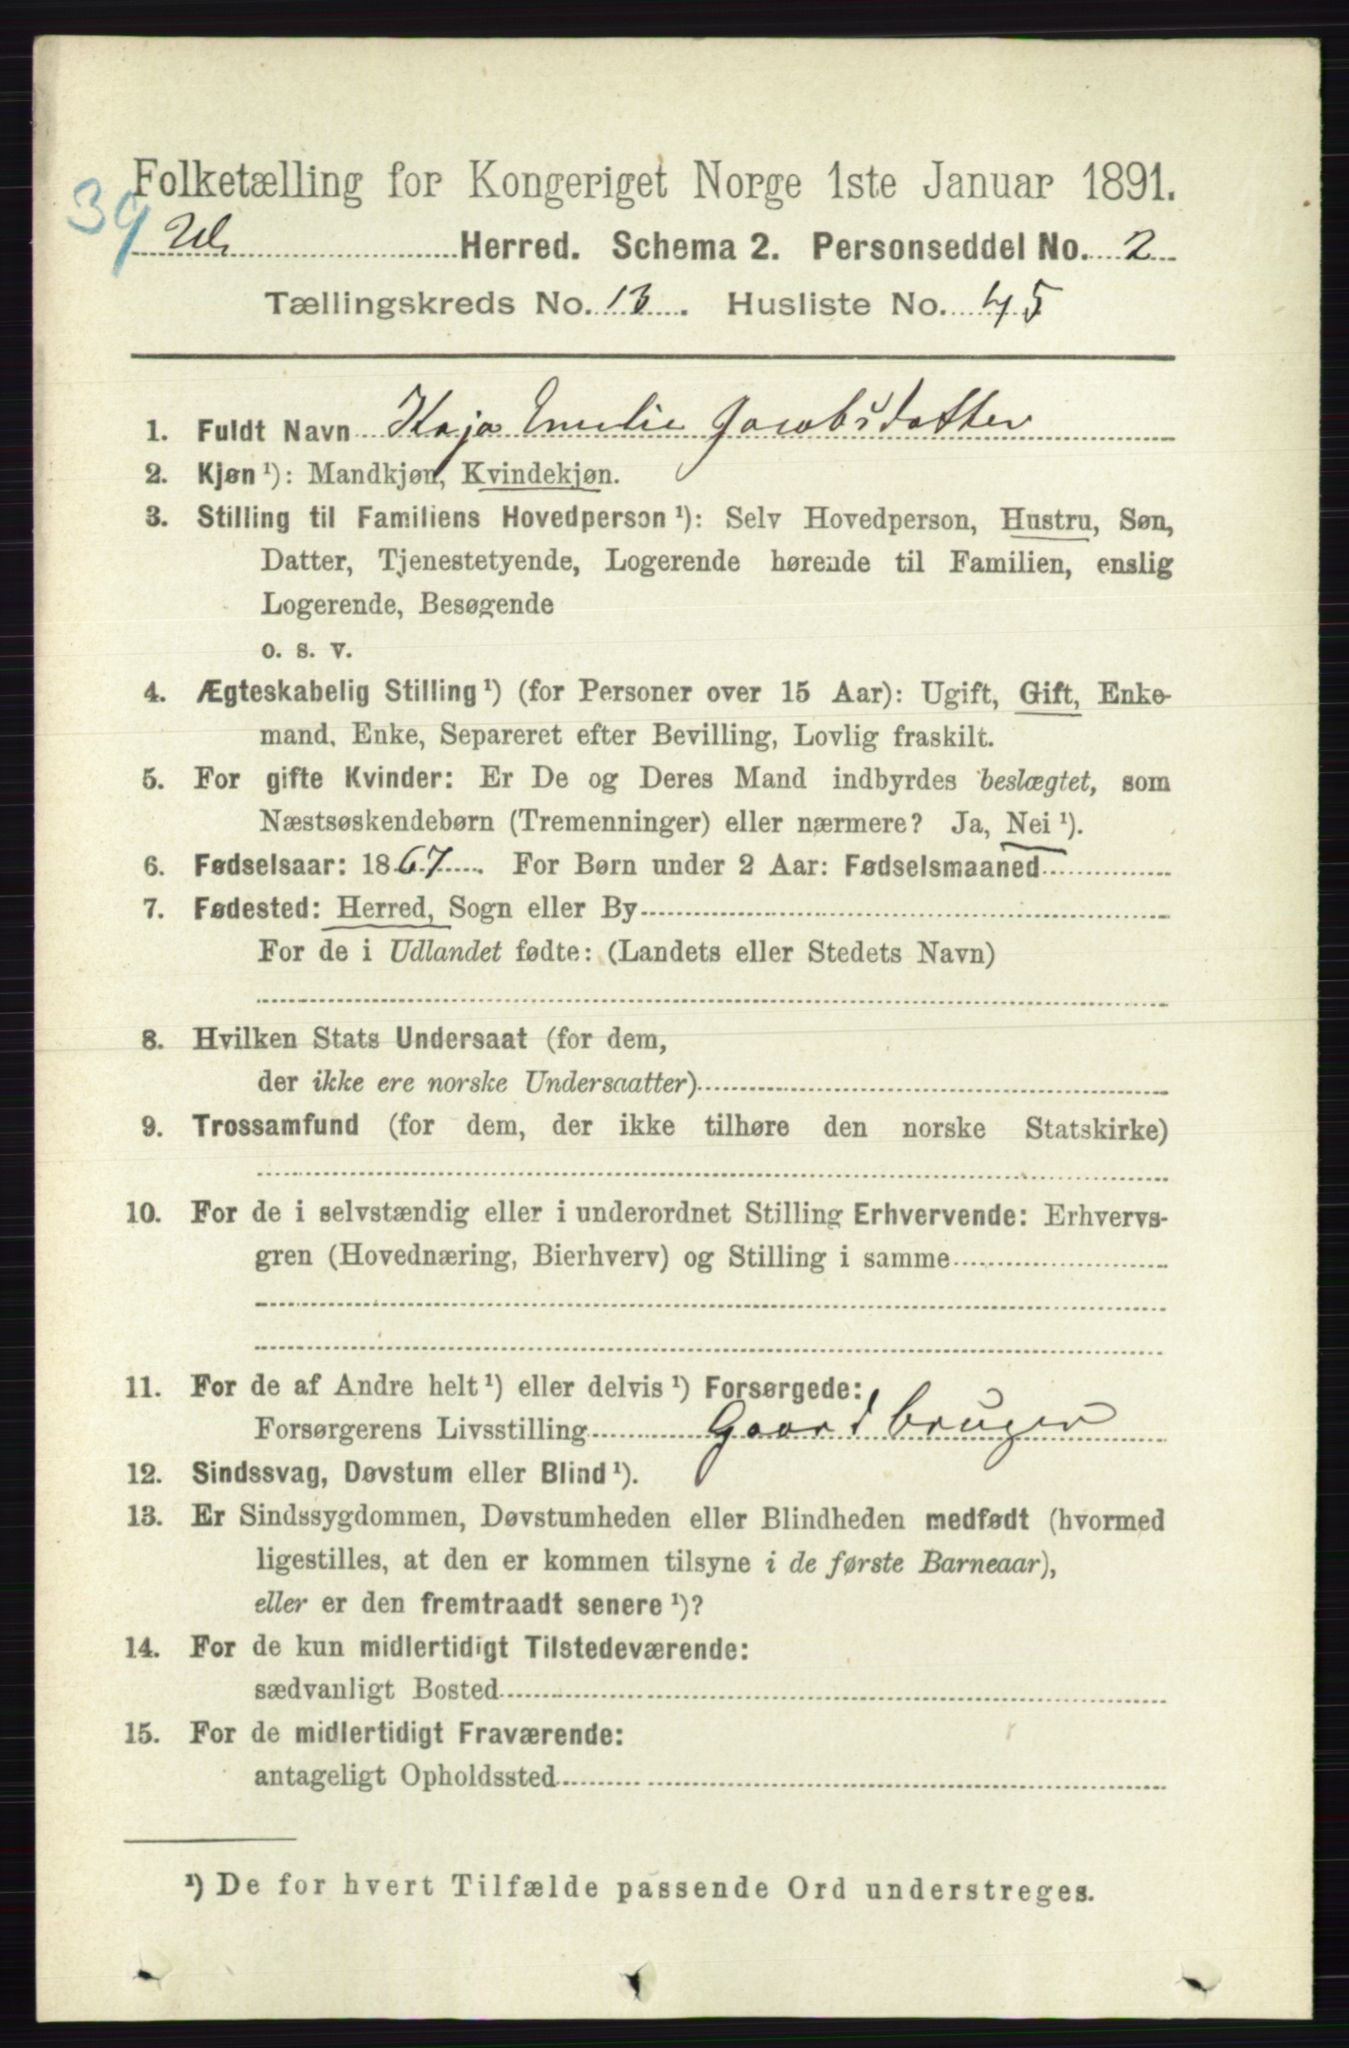 Folketælling for Kongeriget Norge 1ste Januar 1891.
39
Herred. Schema 2. Personseddel No. 2
Tællingskreds No. 13. Husliste No. 45
1. Fuldt Navn Kaja Emelie Jacobsdatter
2. Kjøn ¹): Mandkjøn, Kvindekjøn.
3. Stilling til Familiens Hovedperson ¹): Selv Hovedperson, Hustru, Søn,
Datter, Tjenestetyende, Logerende hørende til Familien, enslig
Logerende, Besøgende
o. s. v.
4. Ægteskabelig Stilling ¹) (for Personer over 15 Aar): Ugift, Gift, Enke-
mand, Enke, Separeret efter Bevilling, Lovlig fraskilt.
5. For gifte Kvinder: Er De og Deres Mand indbyrdes beslægtet, som
Næstsøskendebørn (Tremenninger) eller nærmere? Ja, Nei ¹).
6. Fødselsaar: 1867. For Børn under 2 Aar: Fødselsmaaned
7. Fødested: Herred, Sogn eller By
For de i Udlandet fødte: (Landets eller Stedets Navn)
8. Hvilken Stats Undersaat (for dem,
der ikke ere norske Undersaatter)
9. Trossamfund (for dem, der ikke tilhøre den norske Statskirke)
10. For de i selvstændig eller i underordnet Stilling Erhvervende: Erhvervs-
gren (Hovednæring, Bierhverv) og Stilling i samme
11. For de af Andre helt ¹) eller delvis ¹) Forsørgede:
Forsørgerens Livsstilling Gaardbruger
12. Sindssvag, Døvstum eller Blind ¹).
13. Er Sindssygdommen, Døvstumheden eller Blindheden medfødt (hvormed
ligestilles, at den er kommen tilsyne i de første Barneaar),
eller er den fremtraadt senere ¹)?
14. For de kun midlertidigt Tilstedeværende:
sædvanligt Bosted
15. For de midlertidigt Fraværende:
antageligt Opholdssted
¹) De for hvert Tilfælde passende Ord understreges.